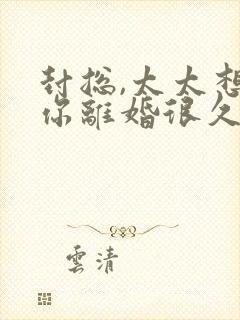 封总,太太想
你離婚很久
雲清